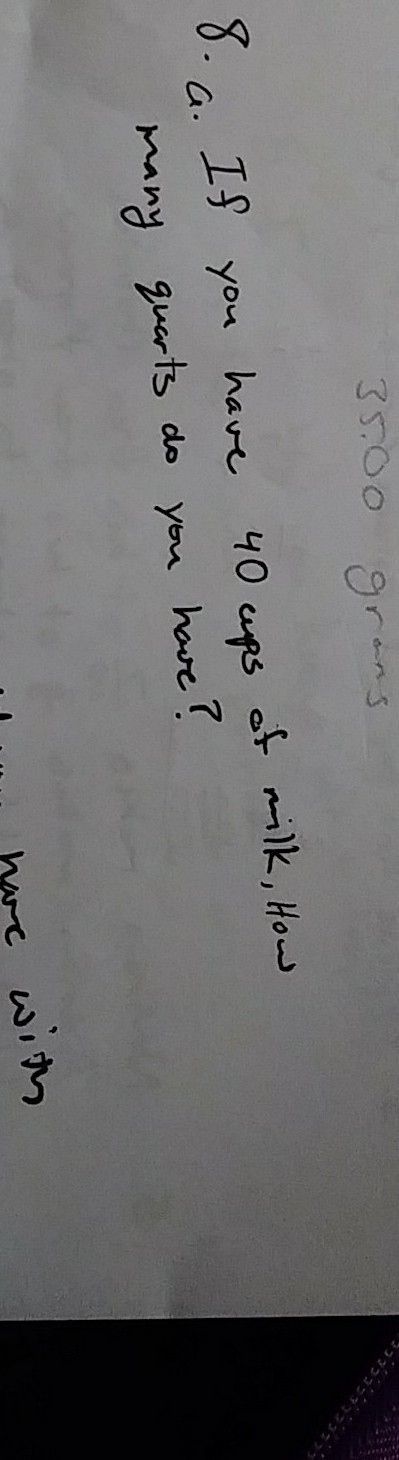 35.00 grams
8. a. If you have 40 cups of milk, How
many quarts do you have?
have with